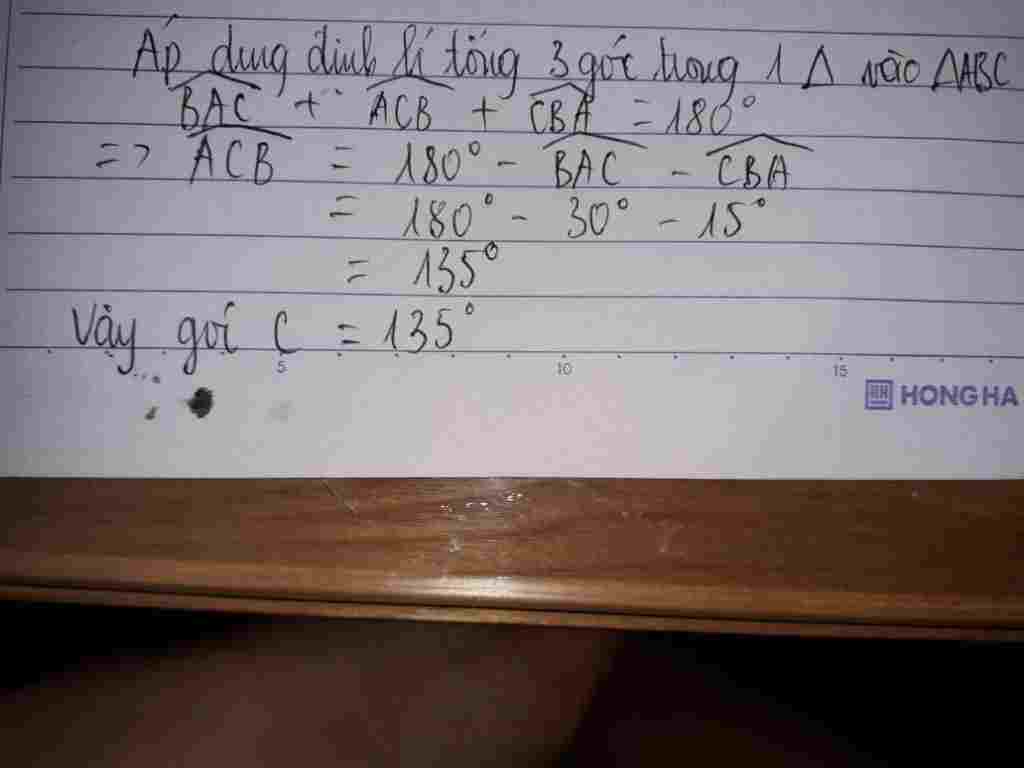 Áp dung dinh lí tổng 3 góc trong 1 Δ vào ΔABC
BAC + ACB + CBA = 180°
=> ACB = 180° - BAC - CBA
= 180° - 30° - 15°
= 135°
Vậy goć C = 135°
5 10 15
HH HONG HA